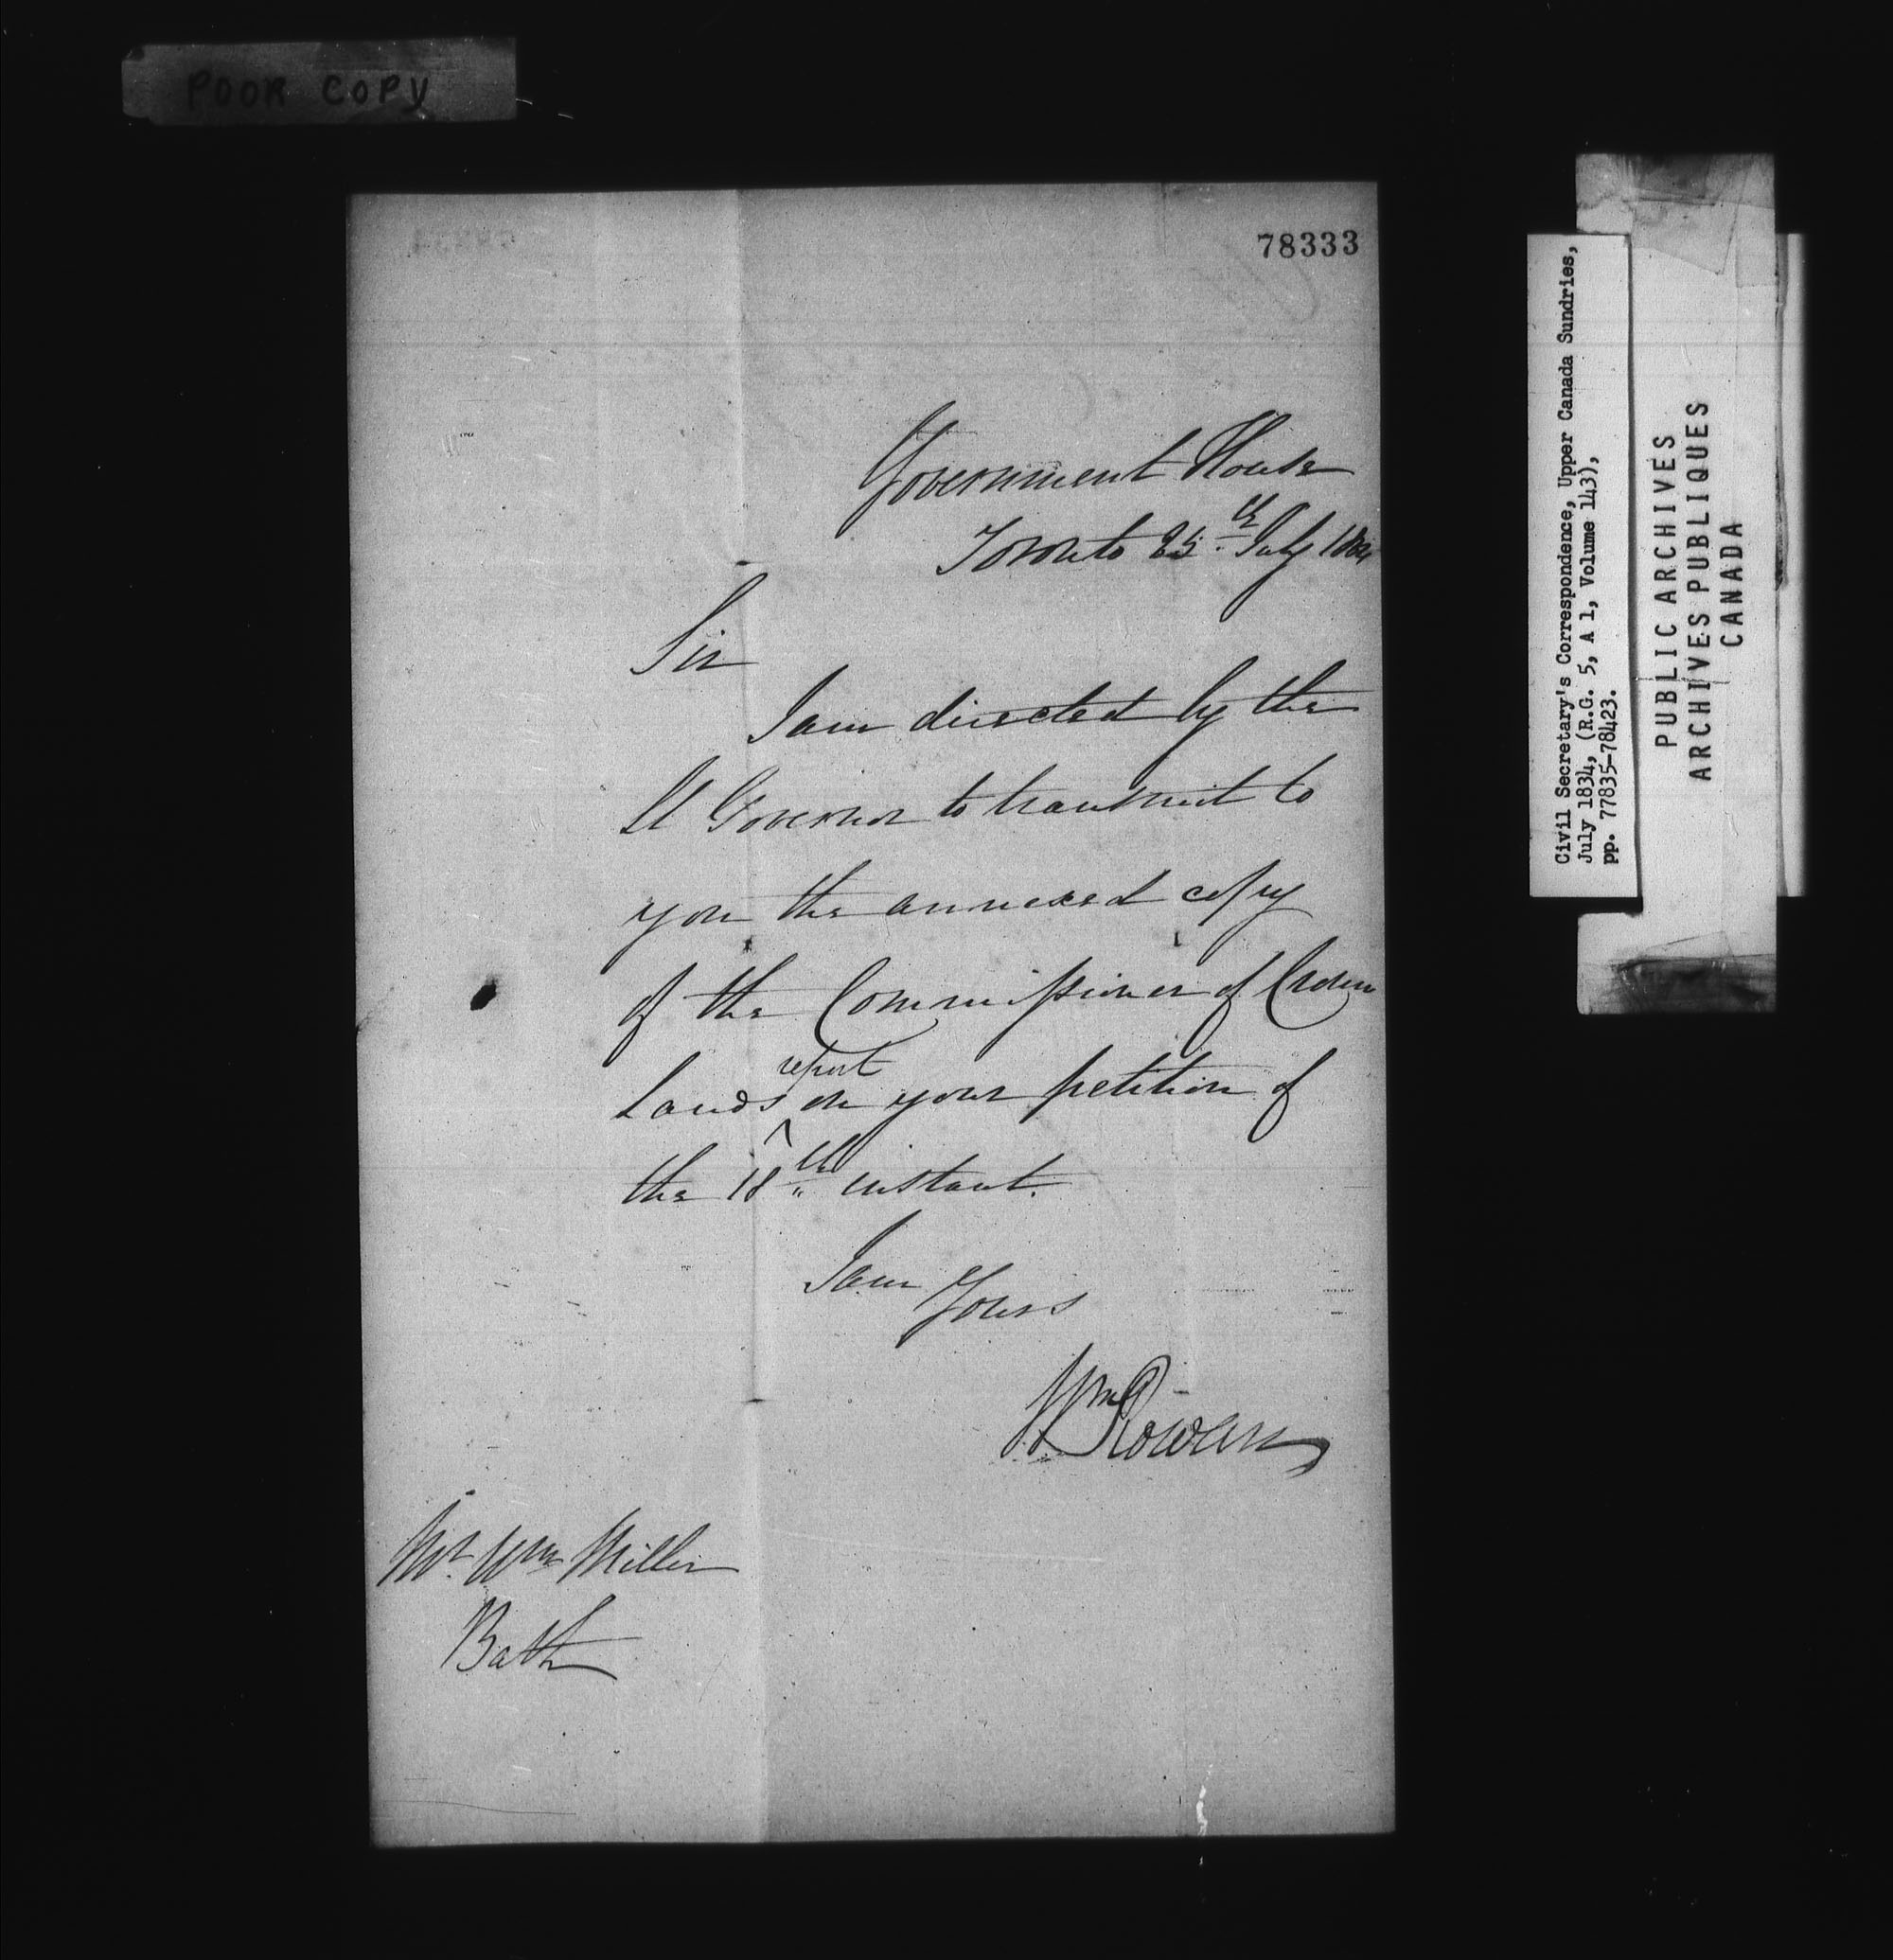 POOR COPY
78333
Government House
Toronto 25th July 1834
Sir
I am directed by the
Lt Governor to transmit to
you the annexed copy
of the Commissioner of Crown
report
Lands on your petition of
the 18th instant.
I am
Yours
Wm Rowan
Mr. Wm Miller
Bath
Civil Secretary's Correspondence, Upper Canada Sundries,
July 1834, (R.G. 5, A 1, Volume 143),
pp. 77835-78423.
PUBLIC ARCHIVES
ARCHIVES PUBLIQUES
CANADA